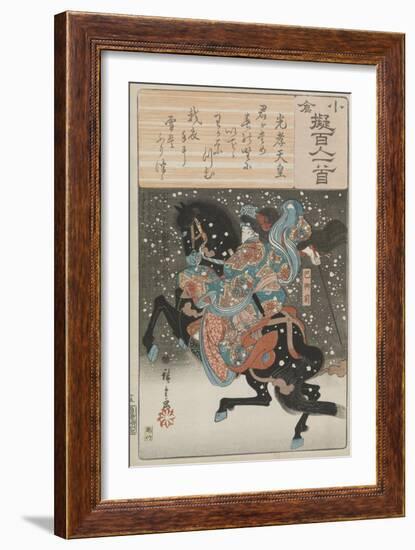 小倉
擬百人一首
光孝天皇
君か為
春の野に
いてゝ
わかな
つむ
我衣
手に
雪は
ふりつゝ
廣重画